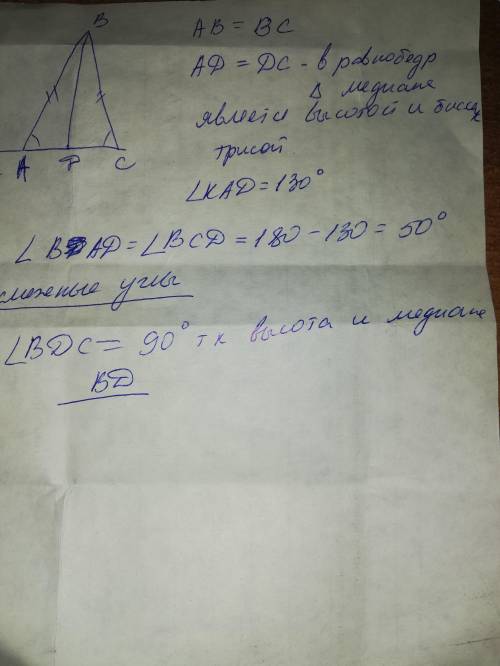 B
AB = BC
AD = DC - в равнобедр
Δ медиана
является высотой и бисек
трисой
A D C
∠KAD = 130°
∠BAD = ∠BCD = 180 - 130 = 50°
смежные углы
∠BDC = 90° т к высота и медиана
BD